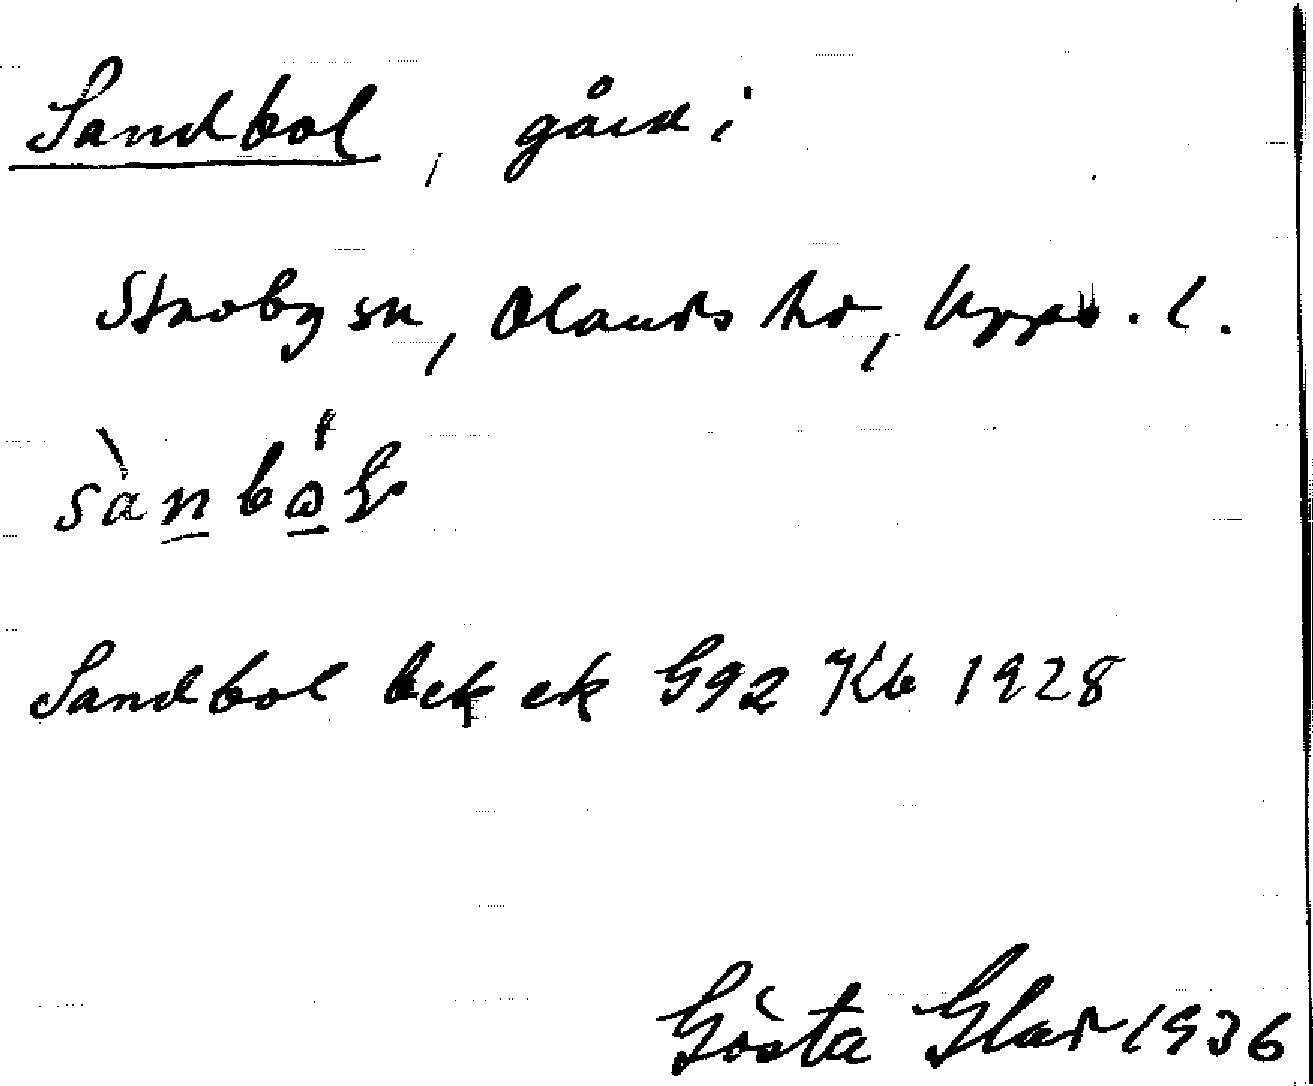 Sandbol, gård i
Skoby sn, Olands hd, Upps. l.
Sandbol bek ek G92 Kb 1928
Gösta Glad 1936